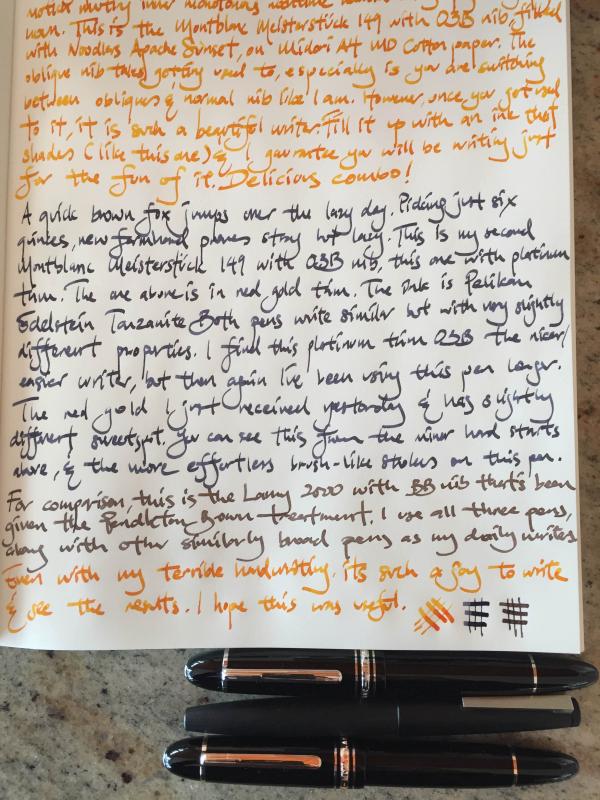 man. This is the Montblanc Meisterstück 149 with O3B nib, filled
with Noodlers Apache Sunset, on Midori A4 MD Cotton paper. The
oblique nib takes getting used to, especially is you are switching
between obliques & normal nib like I am. However, once you get used
to it, it is such a beautiful writer. Fill it up with an ink that
shades (like this one) & I guarantee you will be writing just
for the fun of it. Delicious combo!
A quick brown fox jumps over the lazy dog. Picking just six
quinces, new farmhand proves strong but lazy. This is my second
Montblanc Meisterstück 149 with O3B nib, this one with platinum
trim. The one above is in red gold trim. The ink is Pelikan
Edelstein Tanzanite. Both pens write similar but with very slightly
different properties. I find this platinum trim O3B the nicer/
easier writer, but then again I've been using this pen longer.
The red gold I just received yesterday & has slightly
different sweetspot. You can see this from the minor hard starts
above, & the more effortless brush-like strokes on this pen.
For comparison, this is the Lamy 2000 with BB nib that's been
given the Pendleton Brown treatment. I use all three pens,
along with other similarly broad pens as my daily writers
Even with my terrible handwriting, its such a joy to write
& see the results. I hope this was useful.